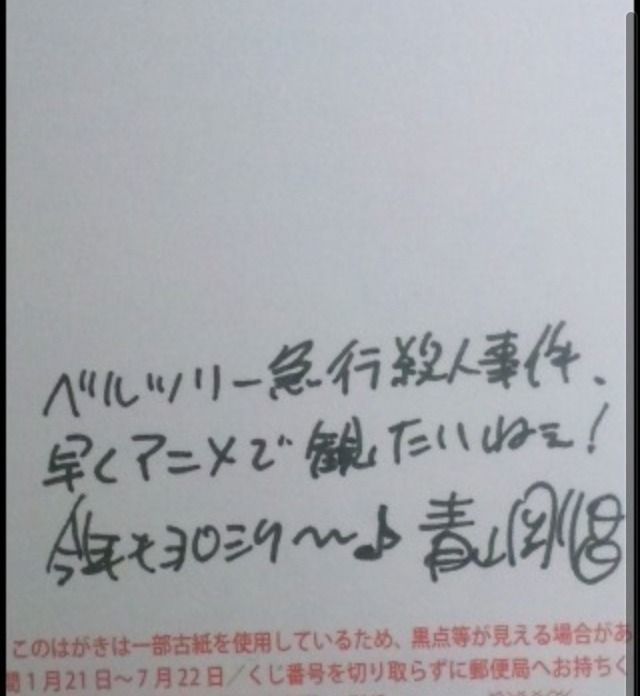 ベルツリー急行殺人事件、
早くアニメで観たいねェ!
今年もヨロシク〜♪ 青山剛昌
このはがきは一部古紙を使用しているため、黒点等が見える場合があ
間1月21日〜7月22日／くじ番号を切り取らずに郵便局へお持ちく